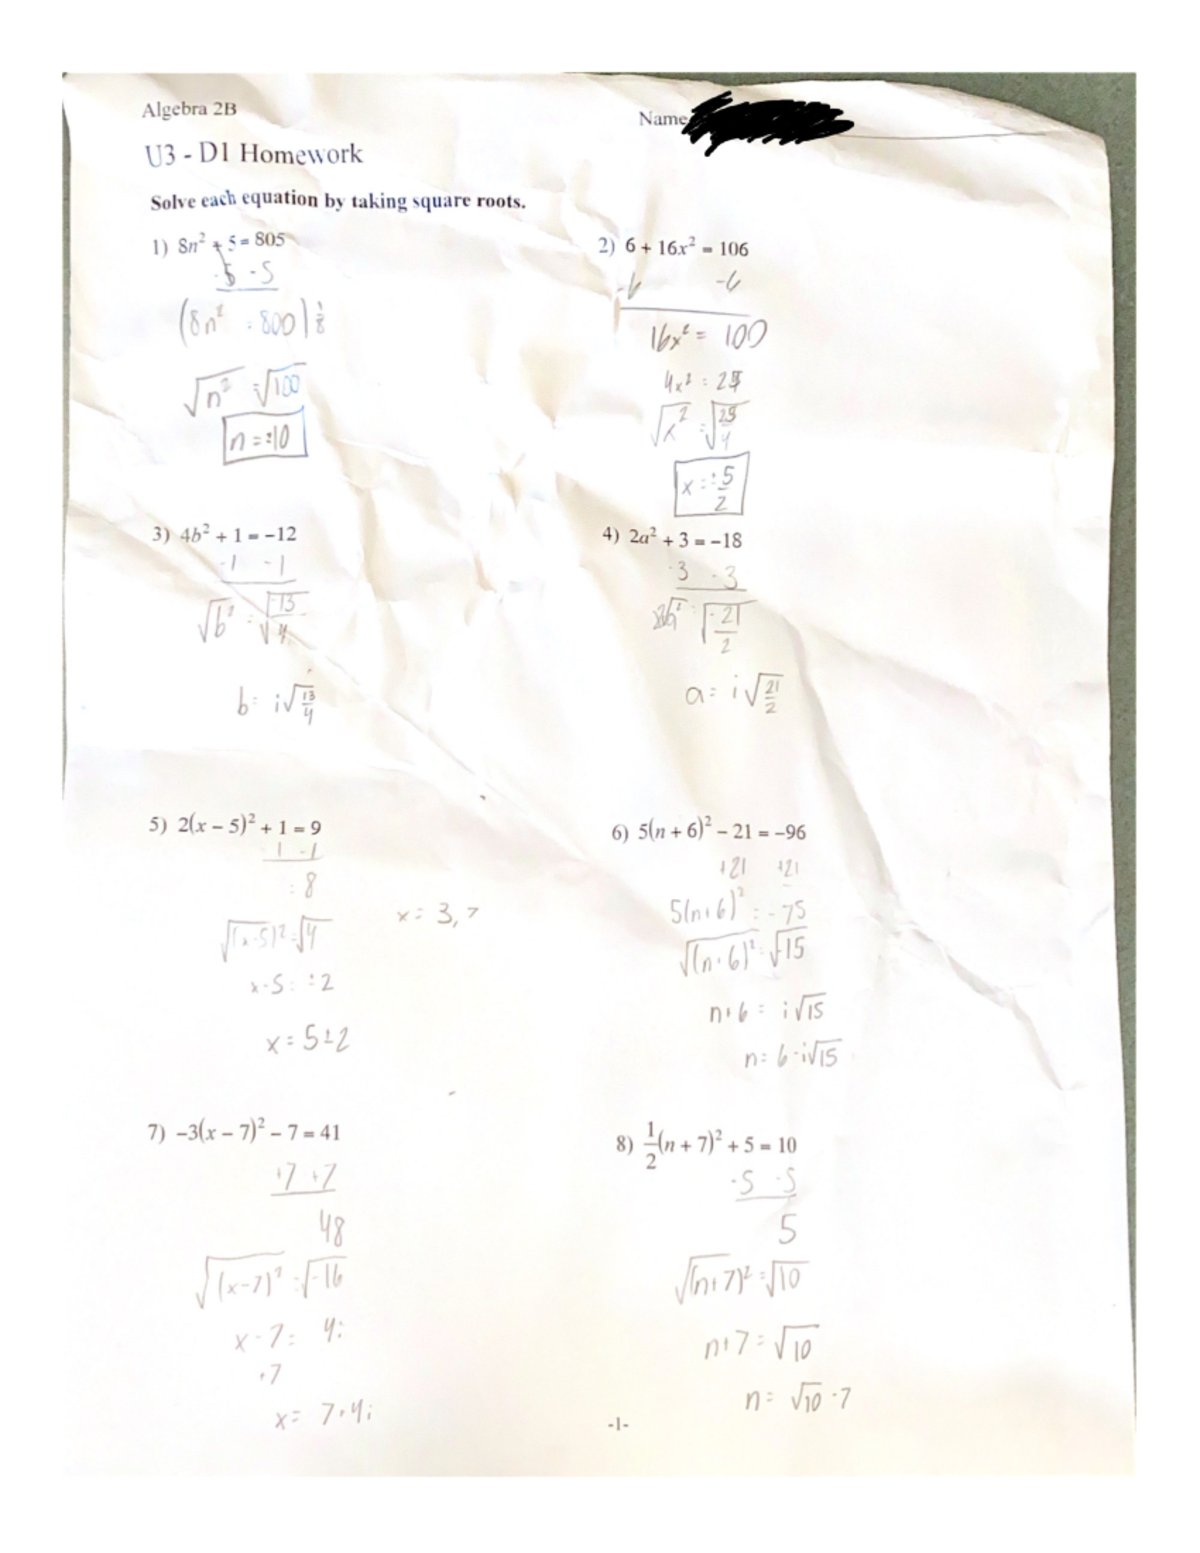 Algebra 2B
Name
U3 - D1 Homework
Solve each equation by taking square roots.
1) 8n² + 5 = 805
-5 -5
(8n² = 800) 1/8
√n² = √100
n = ±10
2) 6 + 16x² = 106
-6 -6
16x² = 100
4x² = 25
√x² = √25/4
x = ±5/2
3) 4b² + 1 = −12
-1 -1
√b² = √-13/4
b = i√13/4
4) 2a² + 3 = −18
-3 -3
√-21/2
a = i√21/2
5) 2(x − 5)² + 1 = 9
-1 -1
= 8
√(x-5)² = √4
x-5 = ±2
x = 5±2
x = 3, 7
6) 5(n + 6)² − 21 = −96
+21 +21
5(n+6)² = -75
√(n+6)² = √-15
n+6 = i√15
n = 6-i√15
7) −3(x − 7)² − 7 = 41
+7 +7
48
√(x-7)² = √-16
x-7 = 4i
+7
x = 7+4i
8) 1/2(n + 7)² + 5 = 10
-5 -5
5
√(n+7)² = √10
n+7 = √10
n = √10 -7
-1-